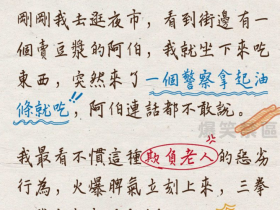 剛剛我去逛夜市，看到街邊有一
個賣豆漿的阿伯，我就坐下來吃
東西，突然來了一個警察拿起油
條就吃，阿伯連話都不敢說。
爆笑禁區
我最看不慣這種欺負老人的惡劣
行為，火爆脾氣立刻上來，三拳